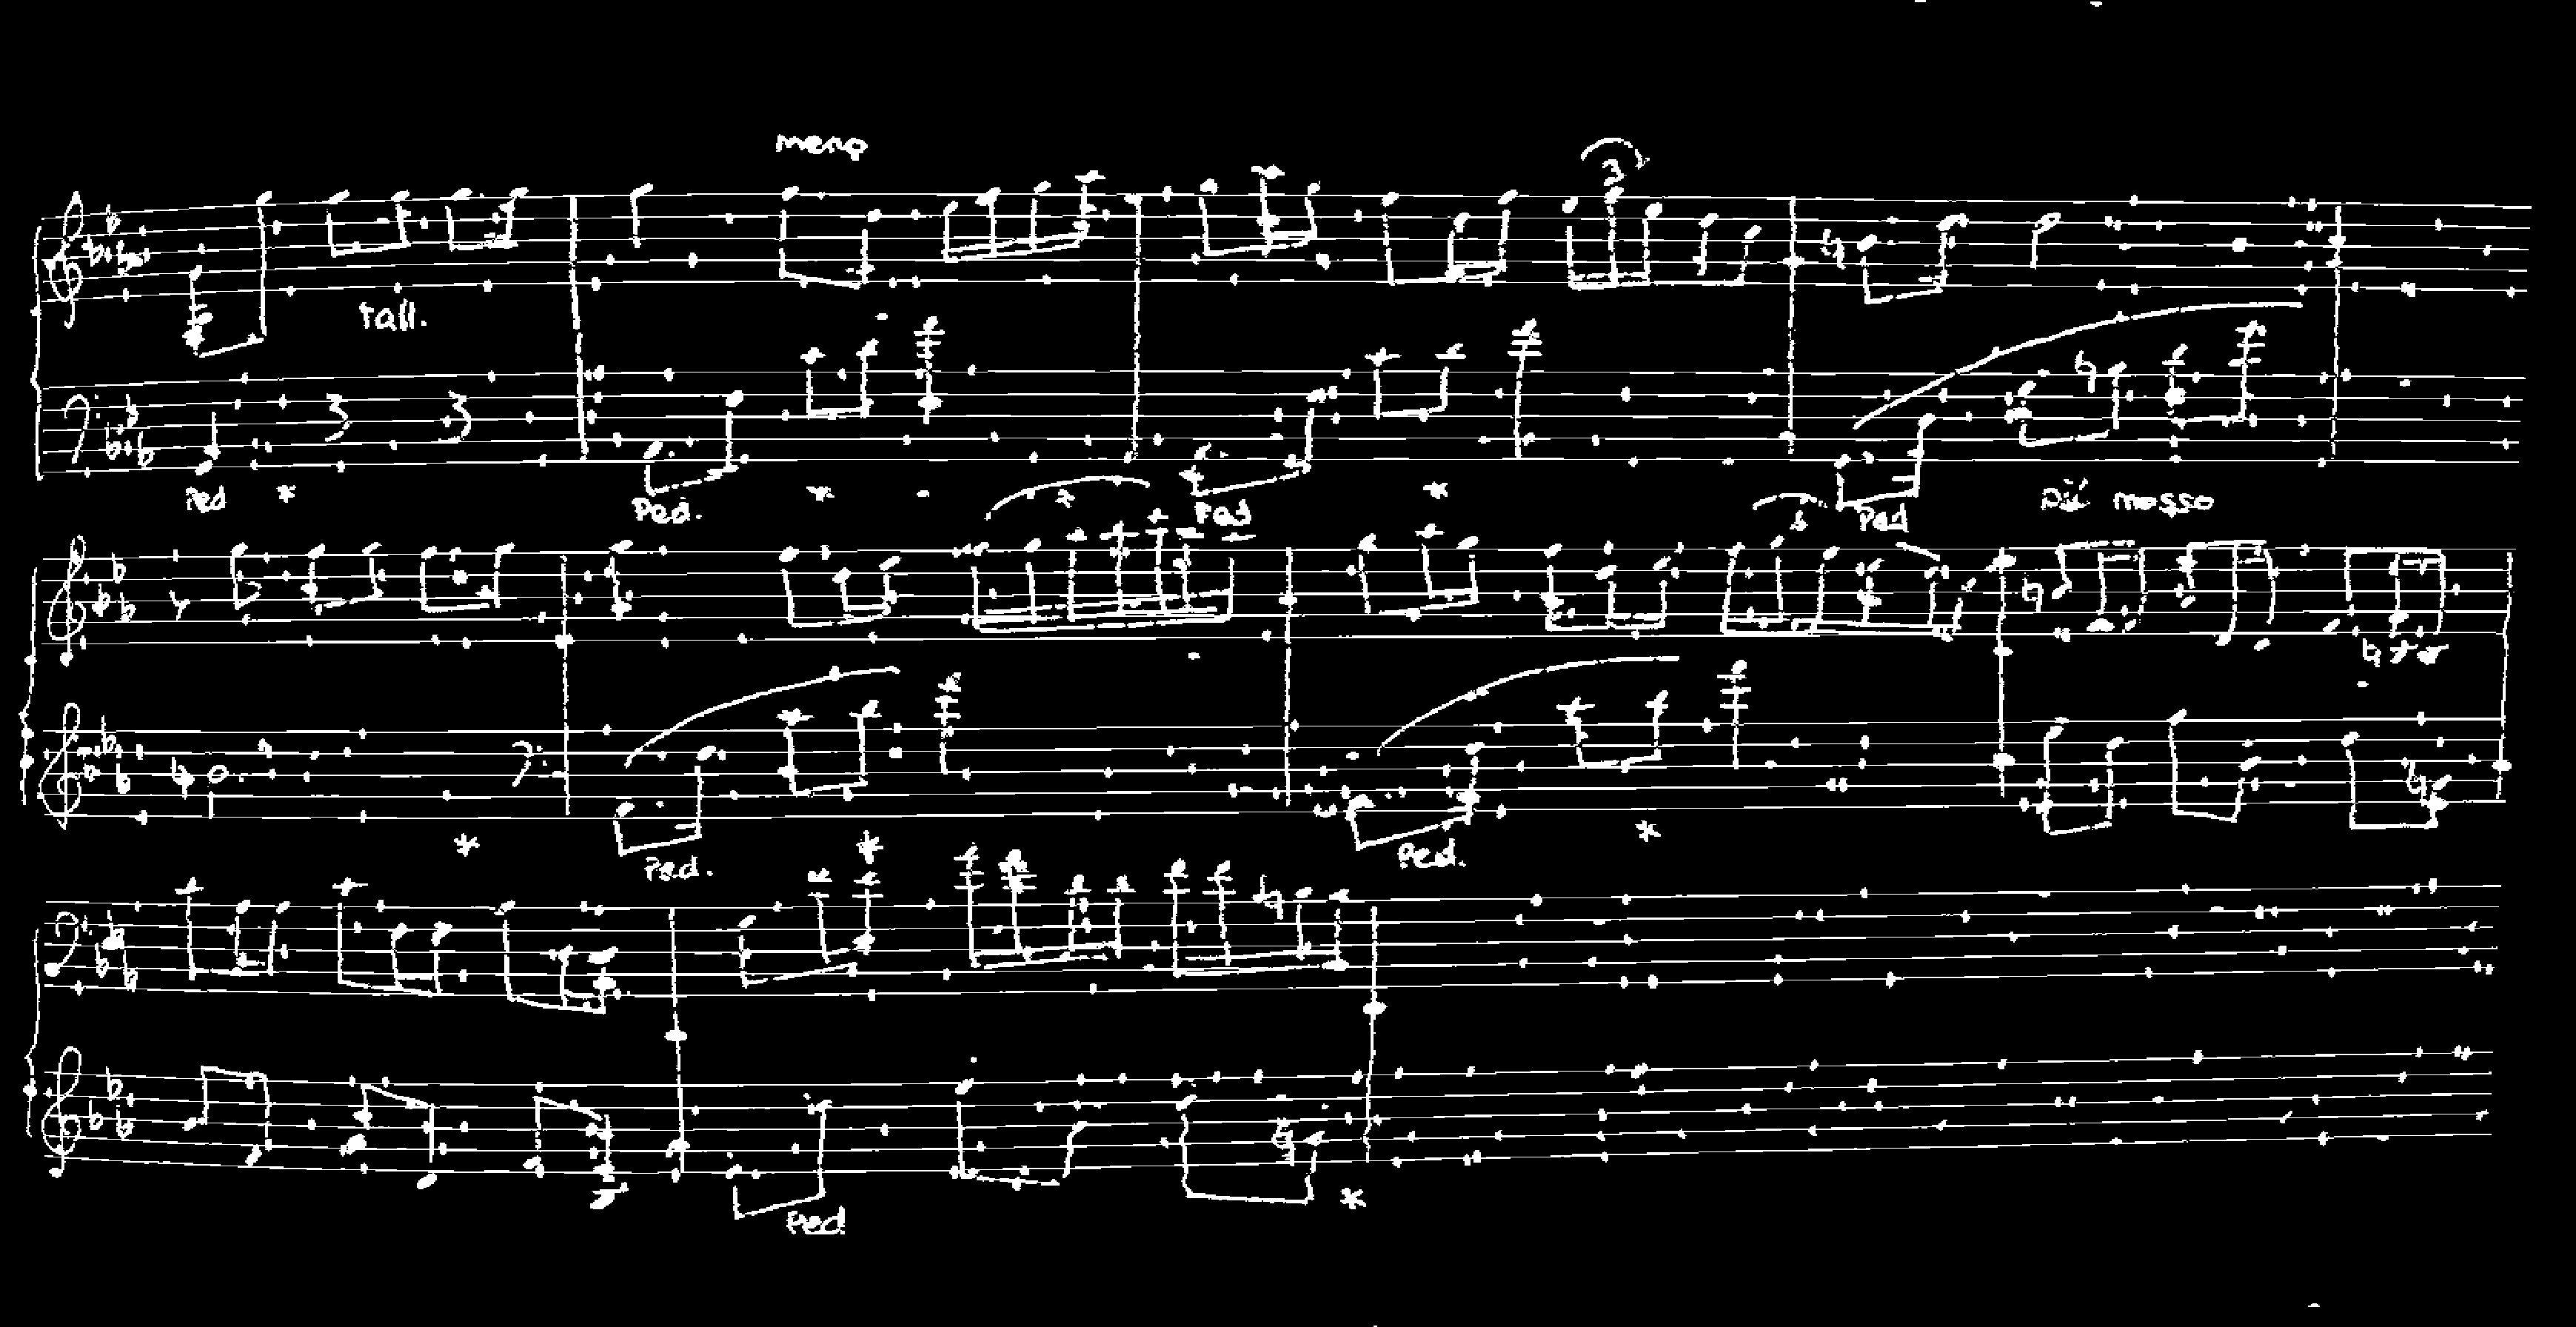 meno
3
rall.
Ped * Ped. * * Ped * Ped più mosso
* Ped. * Ped. *
Ped *